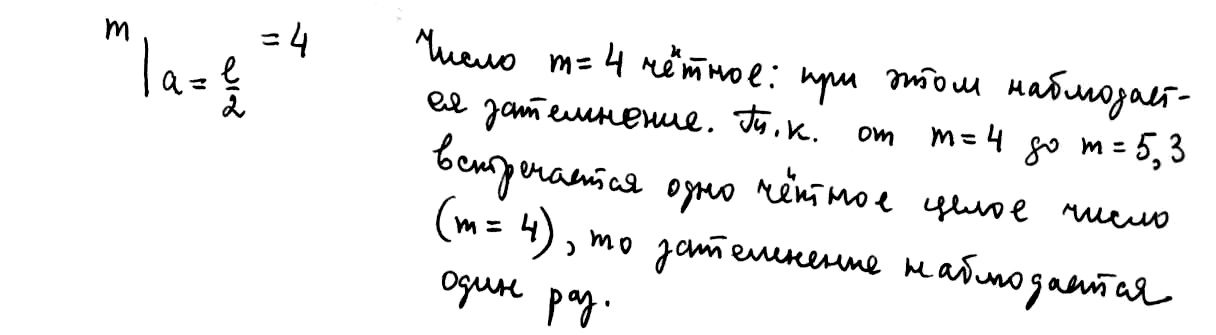 m|a = l/2 = 4
Число m = 4 чётное: при этом наблюдает-
ся затемнение. Т.к. от m = 4 до m = 5,3
встречается одно чётное целое число
(m = 4), то затемнение наблюдается
один раз.